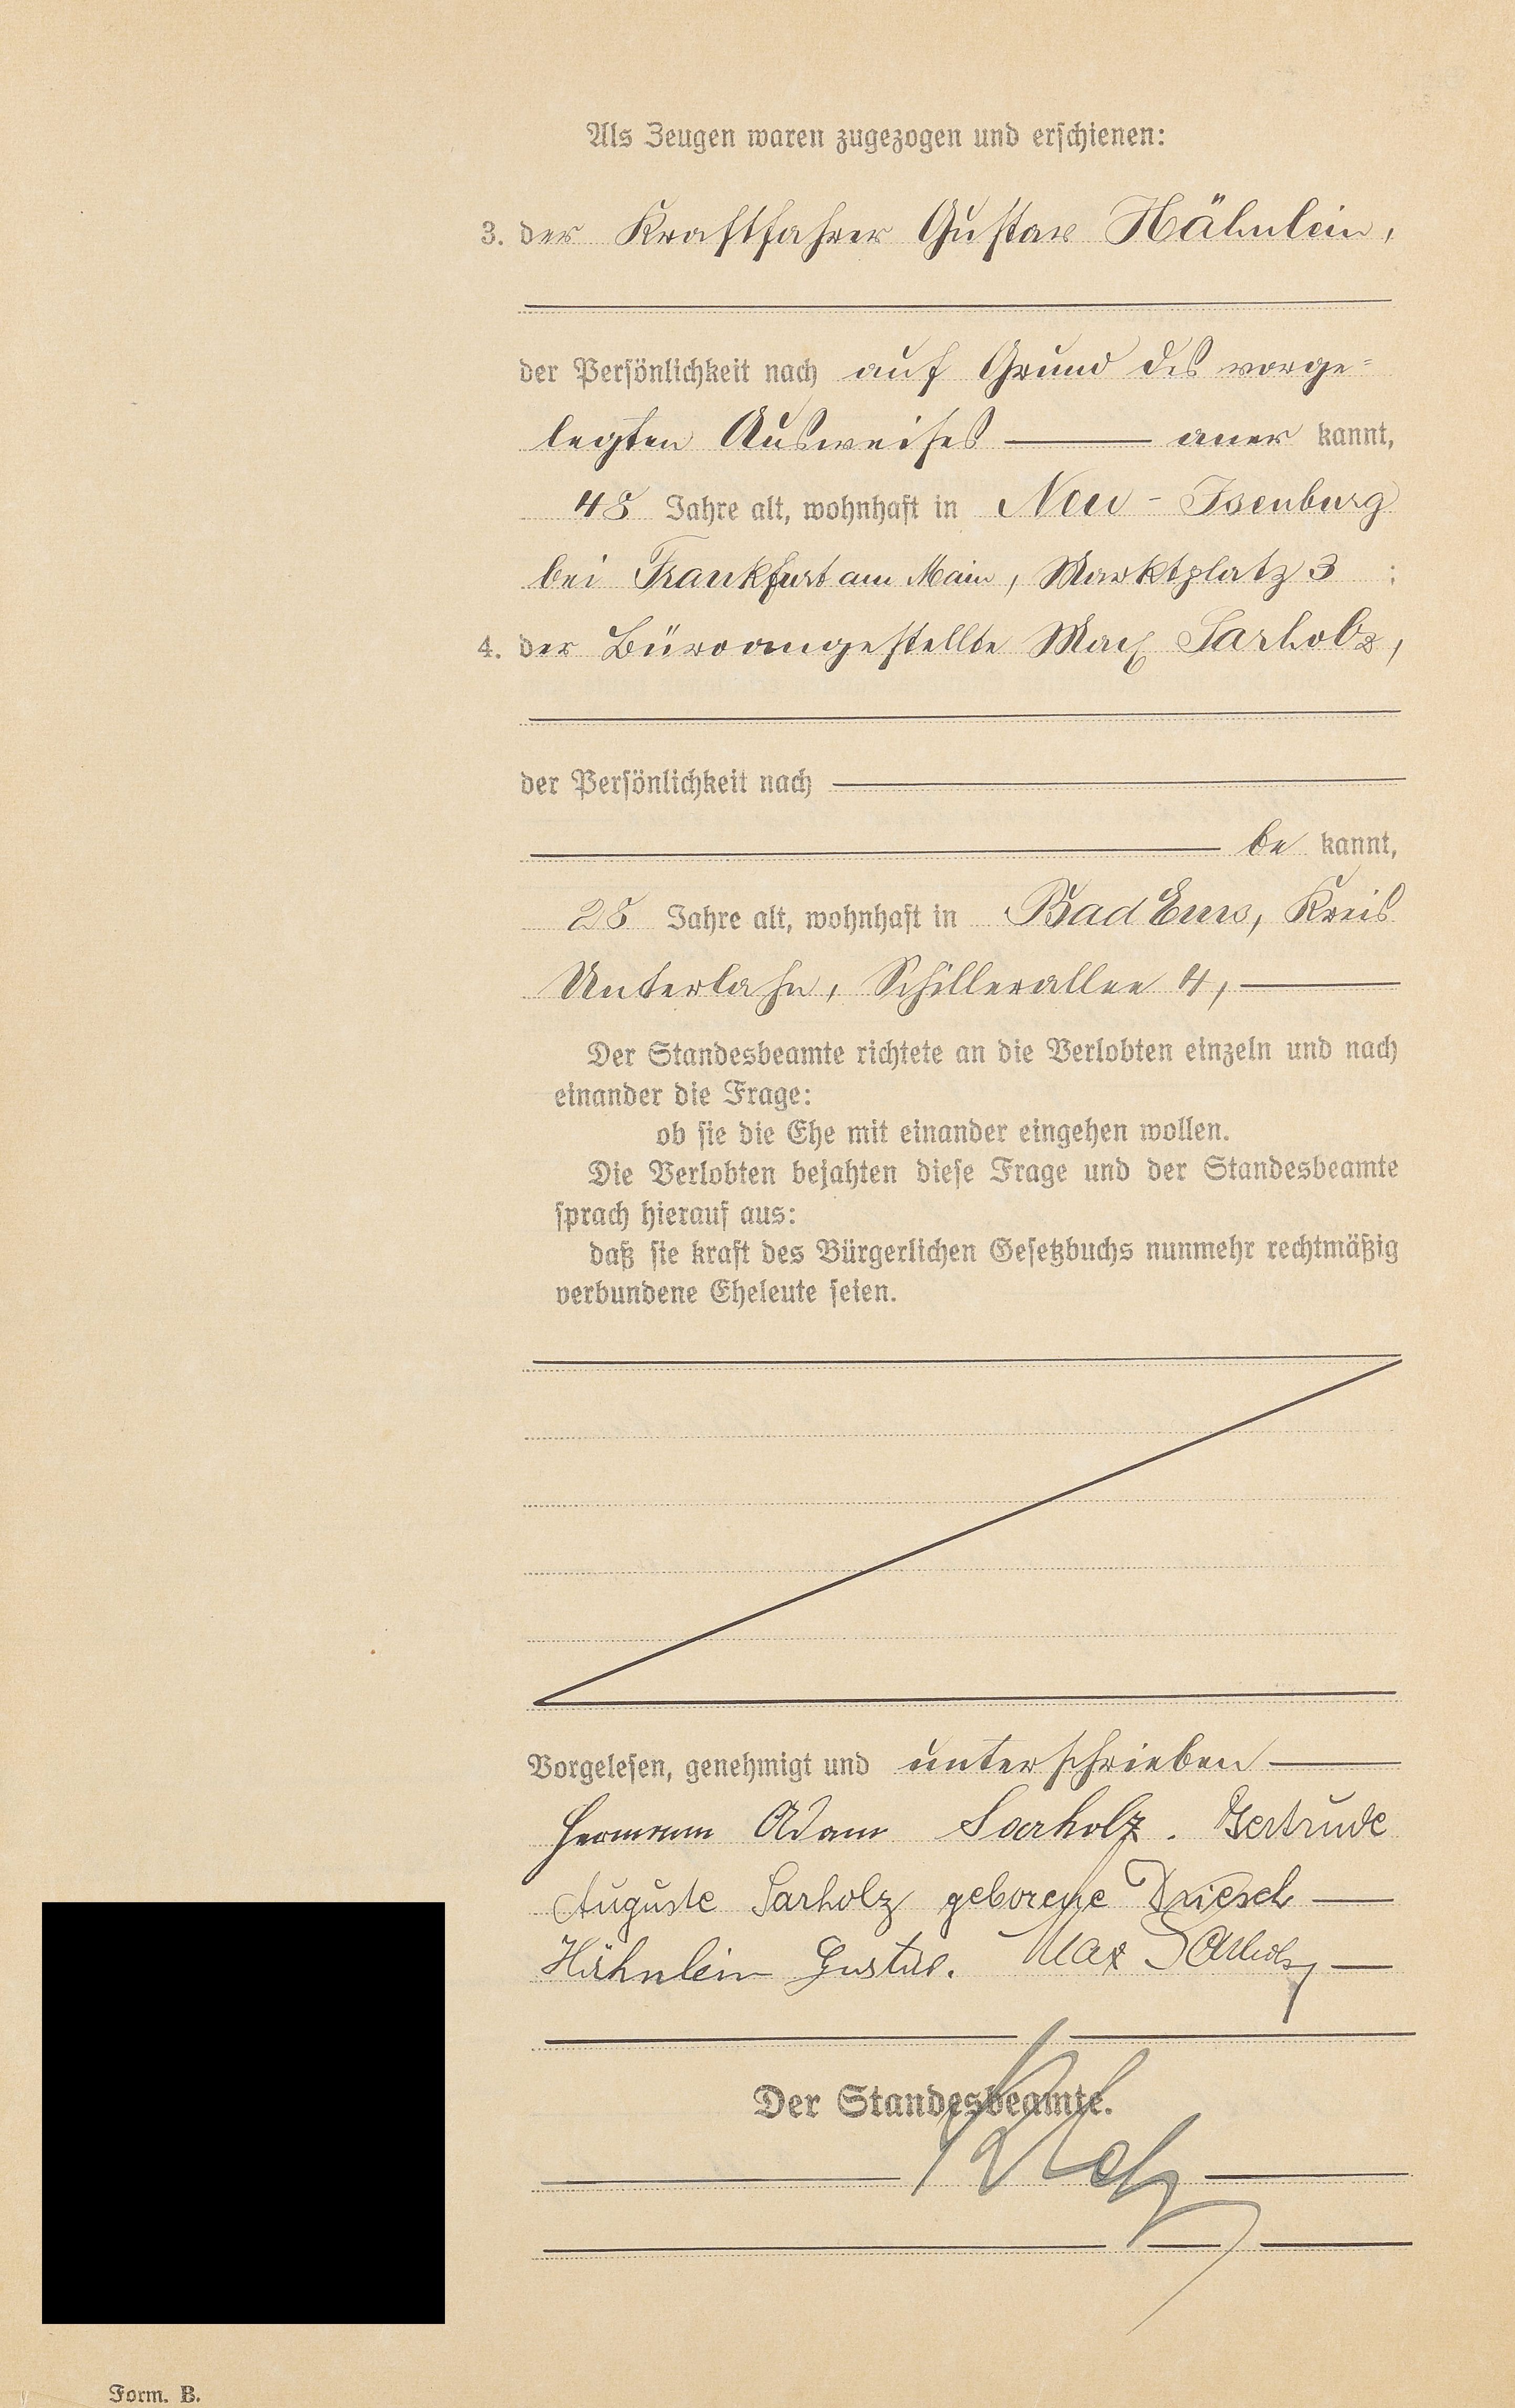 Als Zeugen waren zugezogen und erschienen:
3. der Kraftfahrer Gustav Hähnlein,
der Persönlichkeit nach auf Grund des vorge=
legten Ausweises — aner kannt,
48 Jahre alt, wohnhaft in Neu-Isenburg
bei Frankfurt am Main, Marktplatz 3 ;
4. der Büroangestellte Max Sarholz,
der Persönlichkeit nach —
— be kannt,
28 Jahre alt, wohnhaft in Bad Ems, Kreis
Unterlahn, Schillerallee 4, —
Der Standesbeamte richtete an die Verlobten einzeln und nach
einander die Frage:
ob sie die Ehe mit einander eingehen wollen.
Die Verlobten bejahten diese Frage und der Standesbeamte
sprach hierauf aus:
daß sie kraft des Bürgerlichen Gesetzbuchs nunmehr rechtmäßig
verbundene Eheleute seien.
Vorgelesen, genehmigt und unterschrieben —
Hermann Adam Sarholz. Gertrude
Auguste Sarholz geborene Driesch —
Hähnlein Gustav. Max Sarholz —
Der Standesbeamte.
Form. B.